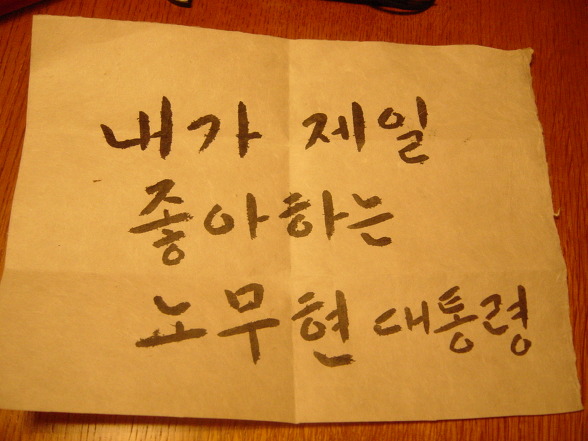 내가 제일
좋아하는
노무현 대통령